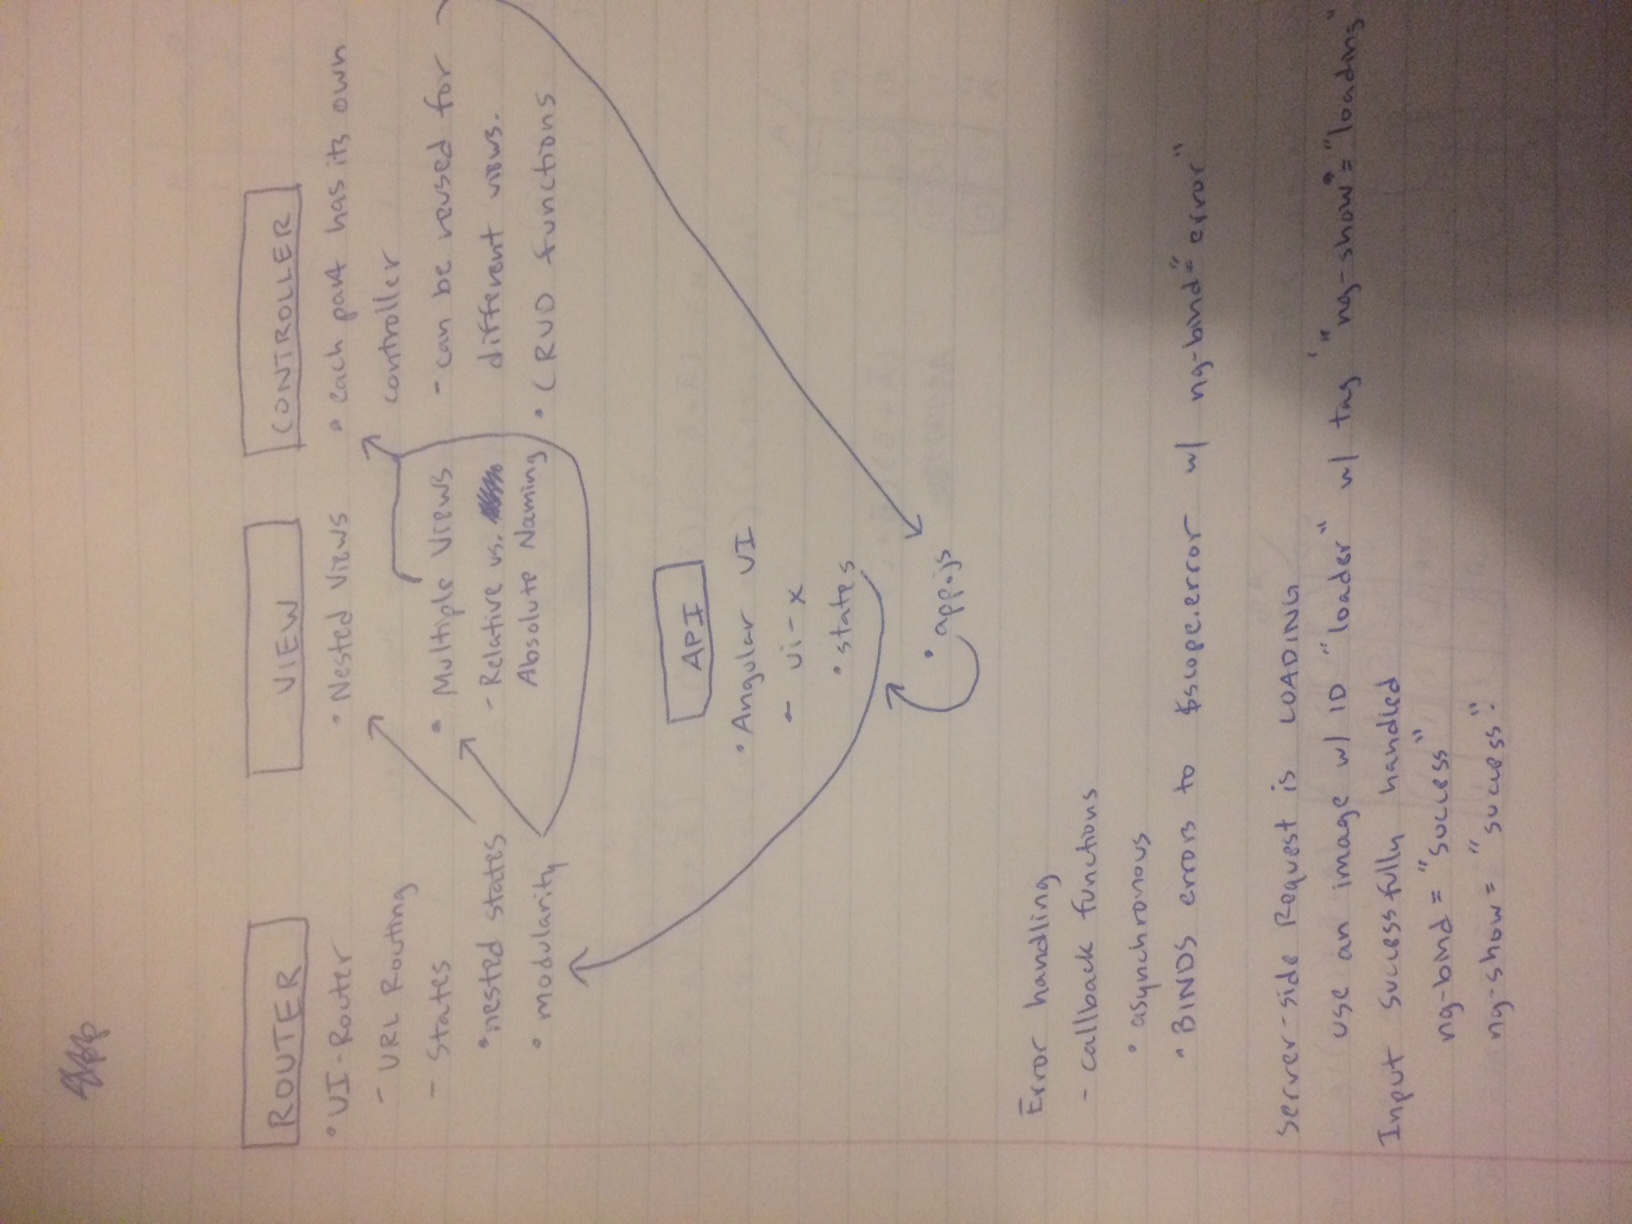 App
ROUTER
• UI-Router
- URL Routing
- States
• nested states
• modularity
VIEW
• Nested Views
• Multiple Views
- Relative vs.
Absolute Naming
CONTROLLER
• each part has its own
controller
- can be reused for
different views.
• CRUD functions
API
• Angular UI
- ui-x
• states
• app.js
Error handling
- callback functions
• asynchronous
• BINDS errors to $scope.error w/ ng-bind="error"
Server-side Request is LOADING
use an image w/ ID "loader" w/ tag "ng-show"="loading"
Input successfully handled
ng-bind = "success"
ng-show = "success".